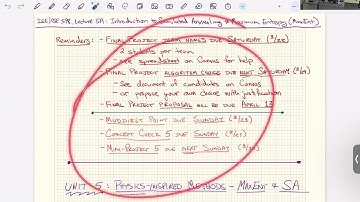 Lecture 5A: Introduction to Simulated Annealing & Maximum Entropy (MaxEnt
Reminders: - Final Project team names due Saturday
2 students per team
- see spreadsheet on Canvas for help
- Final Project algorithm choice due next Saturday
- see document of candidates on Canvas
- or propose your own choice with justification
- Final Project proposal will be due April 13
- Muddiest Point due Sunday
- Concept Check 5 due Sunday
- Mini-Project 5 due next Sunday
Unit 5: Physics-Inspired Methods - MaxEnt & SA